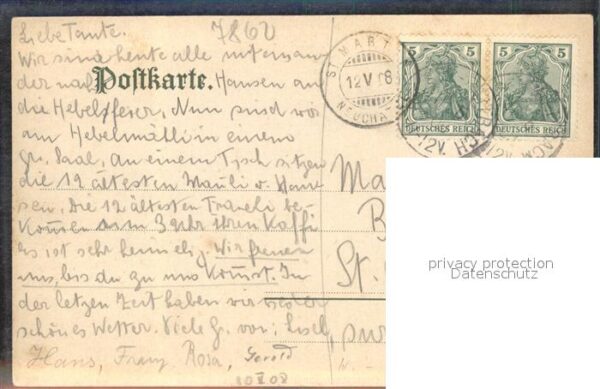 Liebe Tante. 7862
Wir sind heute alle miteinan
der nach Hausen an
Postkarte.
die Hebelfeier, Nun sind wir
am Hebelmätli in einem
gr. Saal, an einem Tisch sitzen
die 12 ältesten Manli v. Hau
sen. Die 12 ältesten Fraueli be-
kommen um 3 Uhr ihren Kaffi
es ist sehr heimelig. Wir freuen
uns, bis du zu uns kommst. In
der letzen Zeit haben wir wieder
schönes Wetter. Viele Gr. von: Lisel,
Hans, Franz Rosa, Gerold
10 V 08
ST. MART
12 V 08
NEUCHA
5 5
5 5
DEUTSCHES REICH
DEUTSCHES REICH
12 V.
Ma
St.
privacy protection
Datenschutz